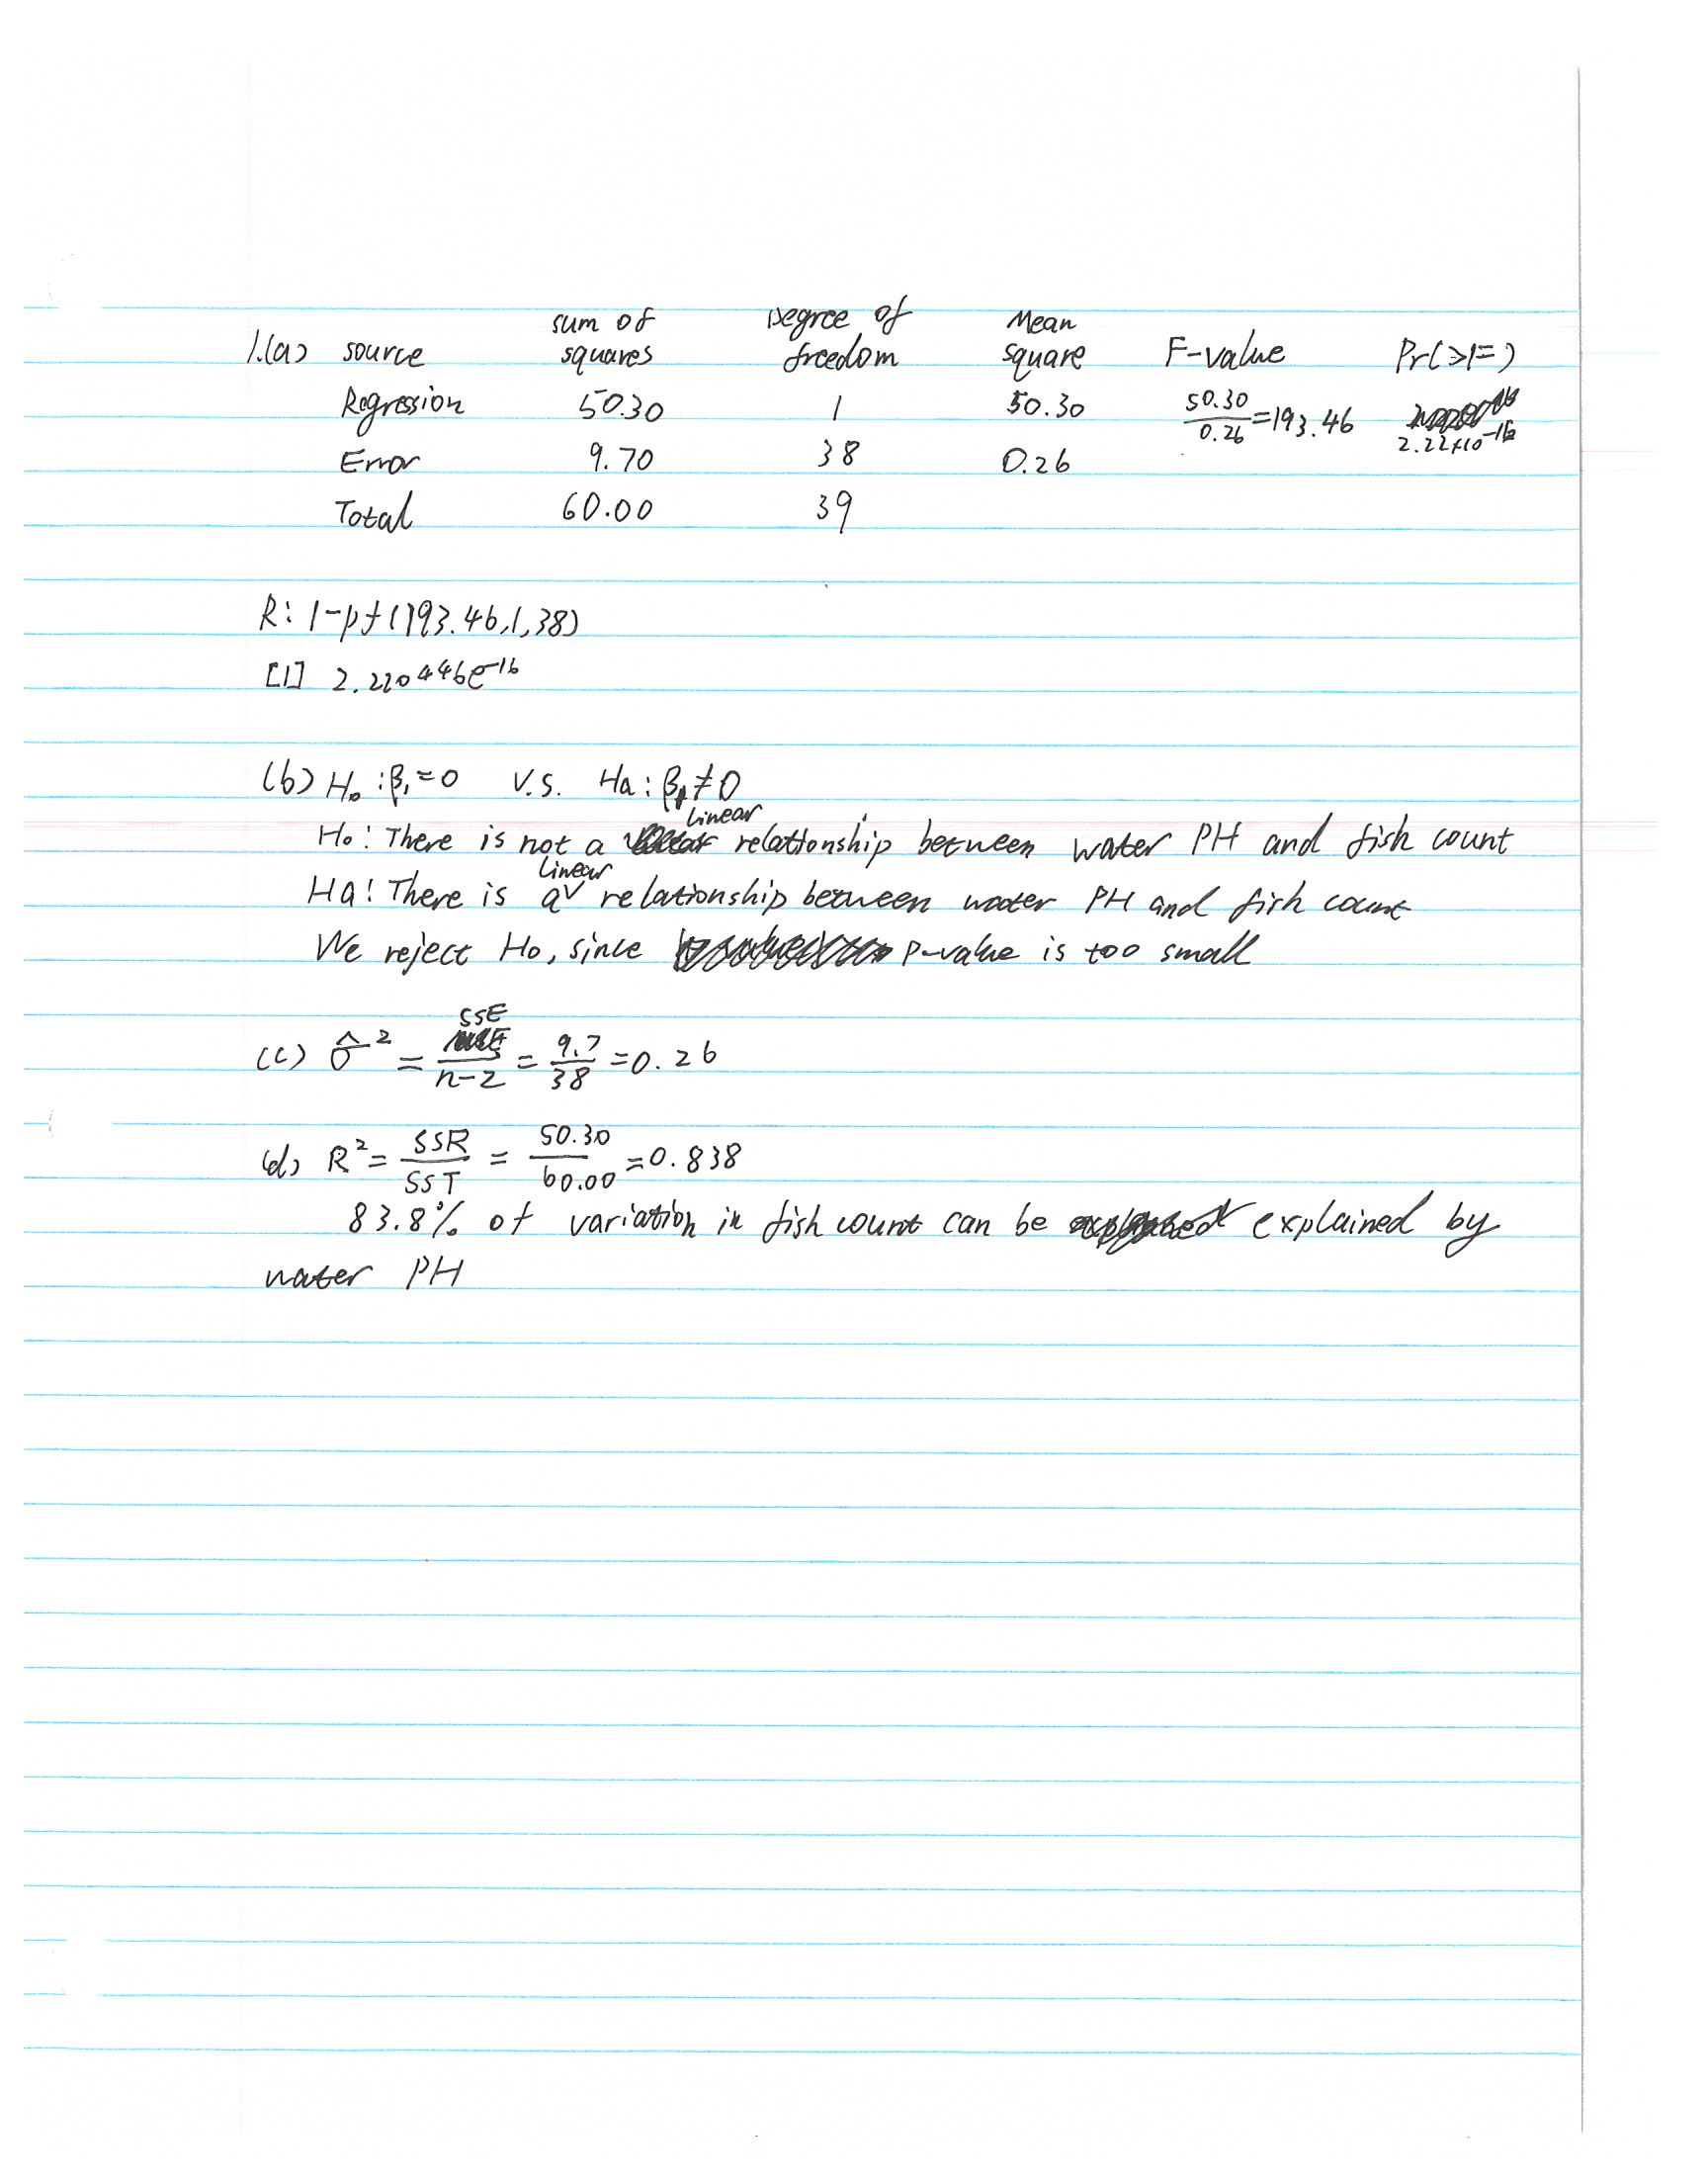 1.(a) source sum of squares Degree of freedom Mean square F-value Pr(>F)
Regression 50.30 1 50.30 50.30/0.26=193.46 2.22×10^-16
Error 9.70 38 0.26
Total 60.00 39
R: 1-pf(193.46,1,38)
[1] 2.220446e^-16
(b) H₀:β₁=0 V.S. Ha:β₁≠0
H₀: There is not a linear relationship between water PH and fish count
Ha: There is a linear relationship between water PH and fish count
We reject H₀, since p-value is too small
(c) σ̂² = SSE/n-2 = 9.7/38 =0.26
(d) R²= SSR/SST = 50.30/60.00 =0.838
83.8% of variation in fish count can be explained by
water PH